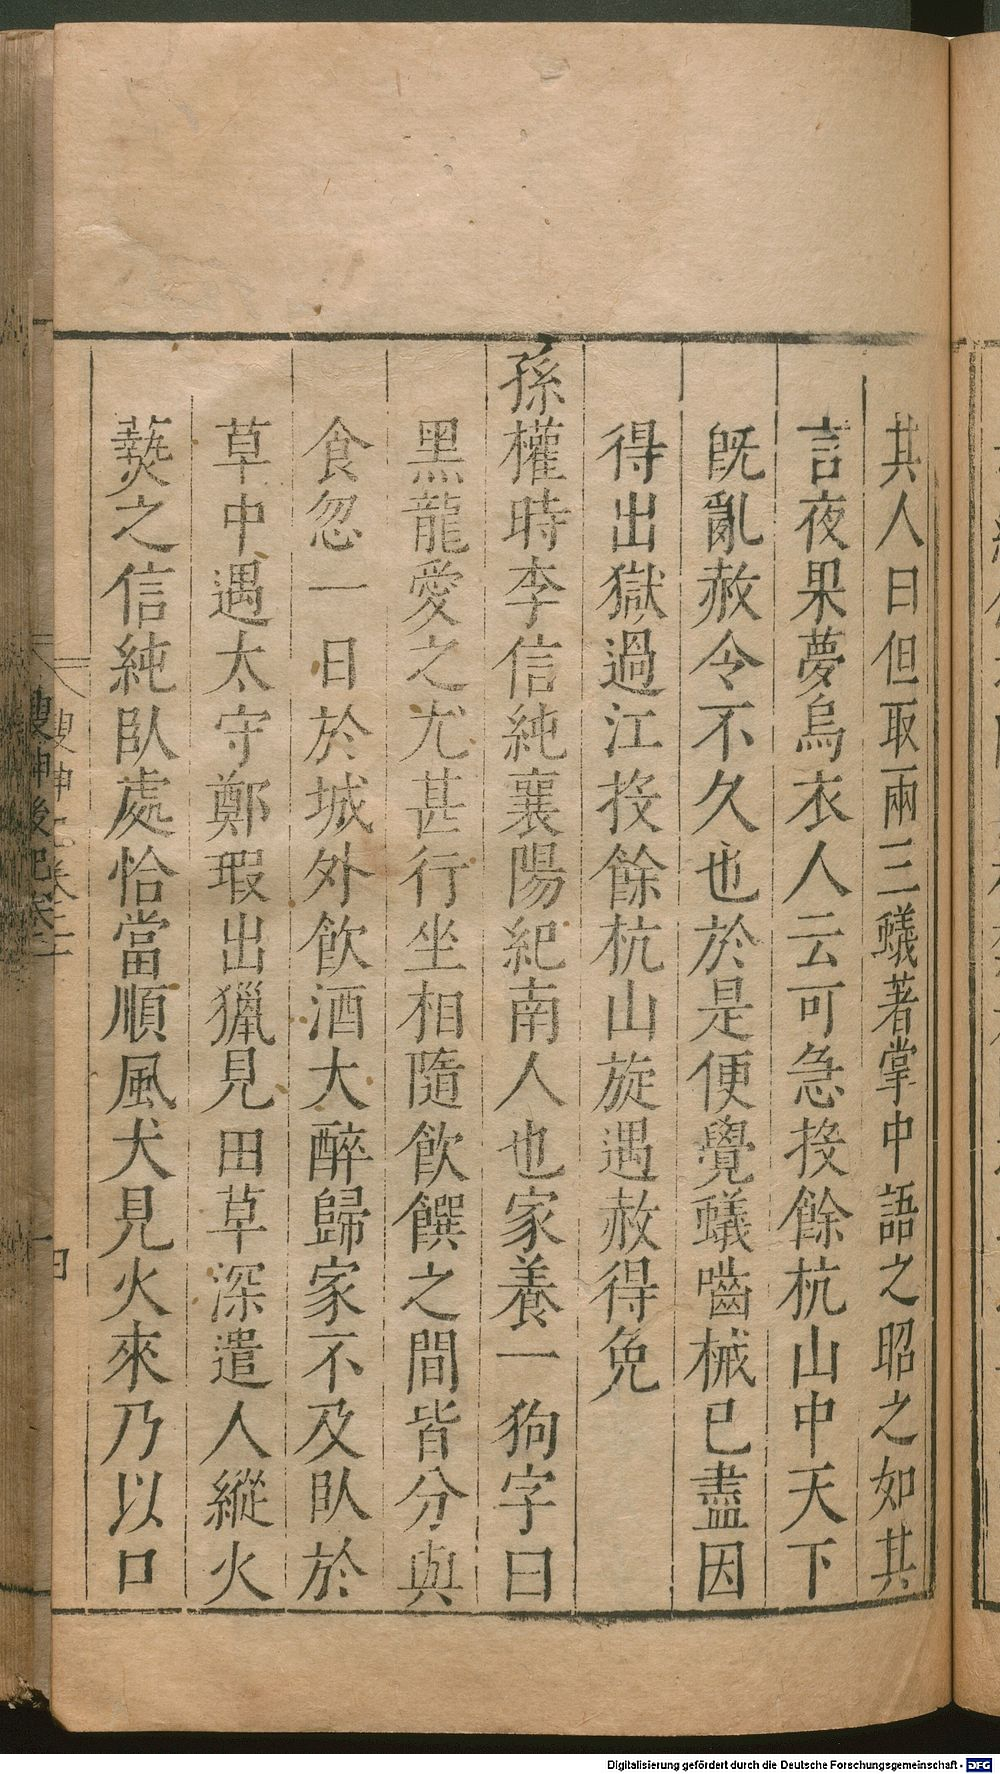 其人曰但取兩三蟻著掌中語之昭之如其
言夜果夢烏衣人云可急投餘杭山中天下
既亂赦令不久也於是便覺蟻嚙械已盡因
得出獄過江投餘杭山旋遇赦得免
孫權時李信純襄陽紀南人也家養一狗字曰
黑龍愛之尤甚行坐相隨飲饌之間皆分與
食忽一日於城外飲酒大醉歸家不及臥於
草中遇太守鄭瑕出獵見田草深遣人縱火
爇之信純臥處恰當順風犬見火來乃以口
Digitalisierung gefördert durch die Deutsche Forschungsgemeinschaft - DFG